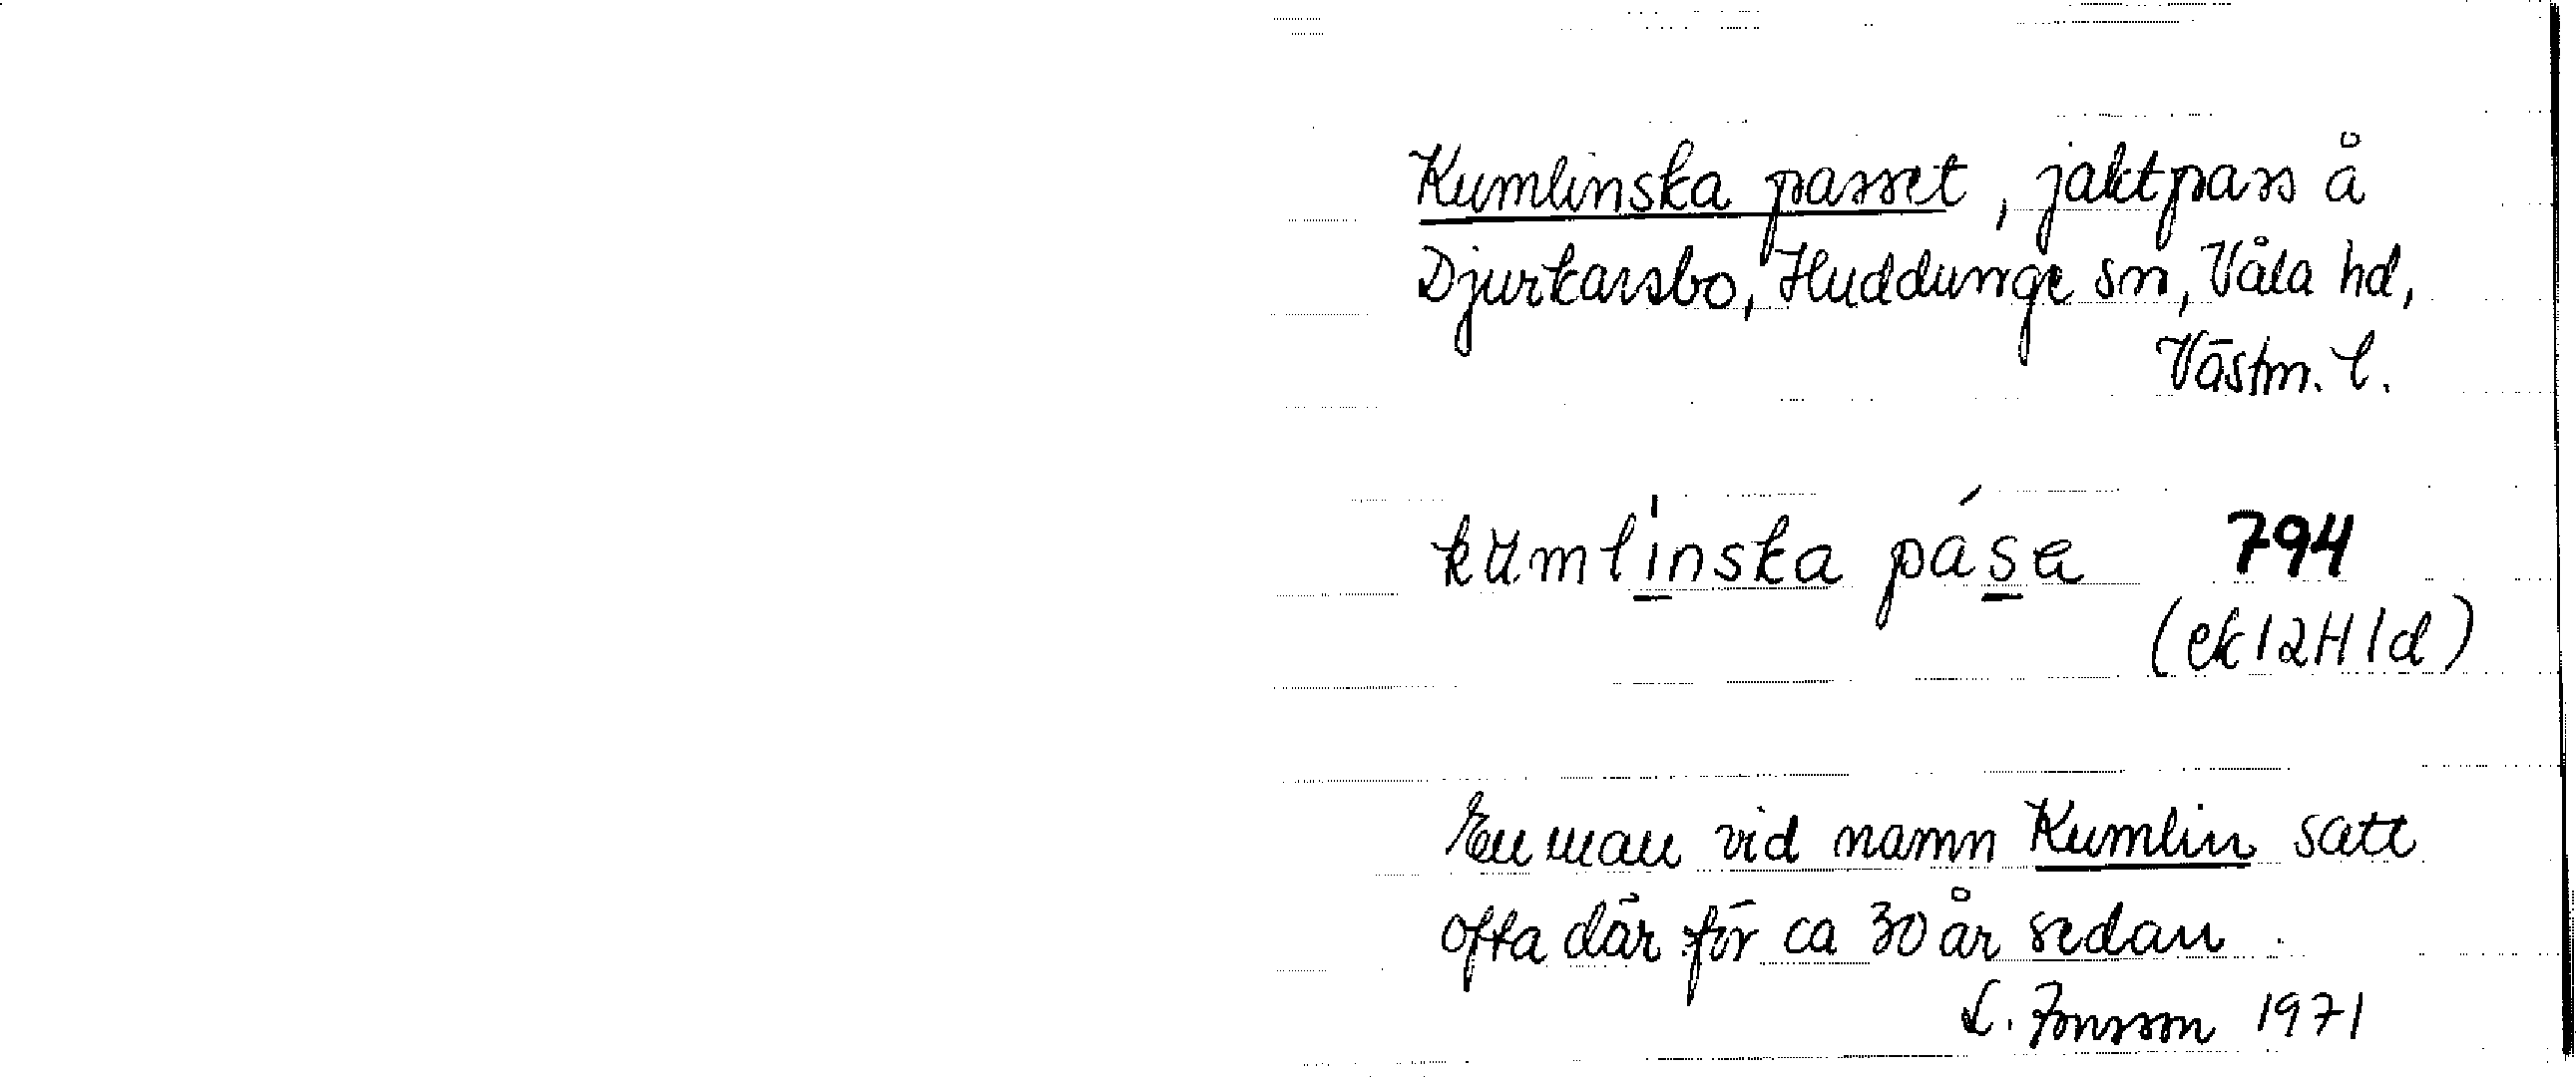 Kumlinska passet, jaktpass å
Djurkarsbo, Huddunge sn, Våla hd,
Västm. l.
kumlinska pása 794
(ek 12H1d)
En man vid namn Kumlin satt
ofta där för ca 30 år sedan.
L. Jonsson 1971